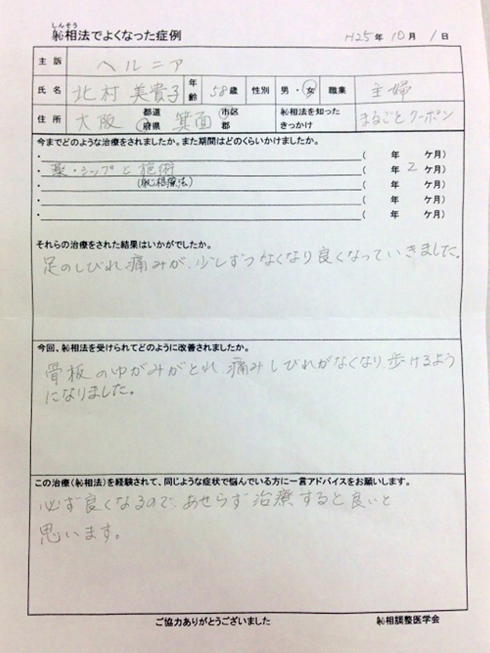 しんそう
相法でよくなった症例 H25年 10月 1日
主訴 ヘルニア
氏名 北村 美貴子 年齢 58歳 性別 男・女 職業 主婦
住所 大阪 都道府県 箕面 市区郡 相法を知ったきっかけ まるごとクーポン
今までどのような治療をされましたか。また期間はどのくらいかけましたか。
・ ( 年 ケ月)
・薬・シップと施術 ( 年 2 ケ月)
・ ( 年 ケ月)
・ ( 年 ケ月)
・ ( 年 ケ月)
それらの治療をされた結果はいかがでしたか。
足のしびれ、痛みが、少しずつなくなり良くなっていきました。
今回、相法を受けられてどのように改善されましたか。
骨板のゆがみがとれ 痛みしびれがなくなり、歩けるよう
になりました。
この治療(相法)を経験されて、同じような症状で悩んでいる方に一言アドバイスをお願いします。
必ず良くなるので、あせらず治療すると良いと
思います。
ご協力ありがとうございました 相調整医学会